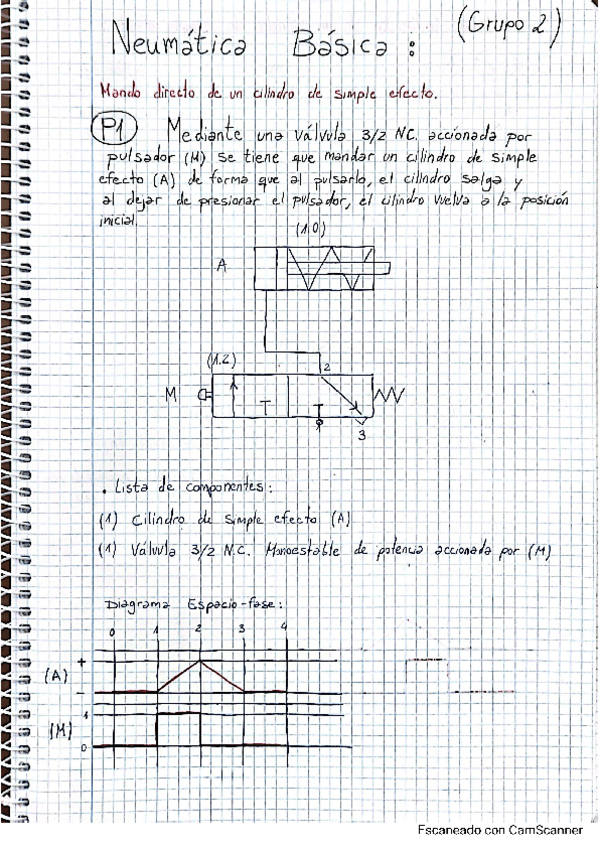 (Grupo 2)
Neumática Básica:
Mando directo de un cilindro de simple efecto.
P1 Mediante una válvula 3/2 N.C. accionada por
pulsador (M) se tiene que mandar un cilindro de simple
efecto (A) de forma que al pulsarlo, el cilindro salga y
al dejar de presionar el pulsador, el cilindro vuelva a la posición
inicial.
(1.0)
A
(1.2)
2
M
3
. Lista de componentes:
(1) Cilindro de simple efecto (A)
(1) Válvula 3/2 N.C. Monoestable de potencia accionada por (M)
Diagrama Espacio-fase:
0 1 2 3 4
+
(A)
-
1
(M)
0
Escaneado con CamScanner